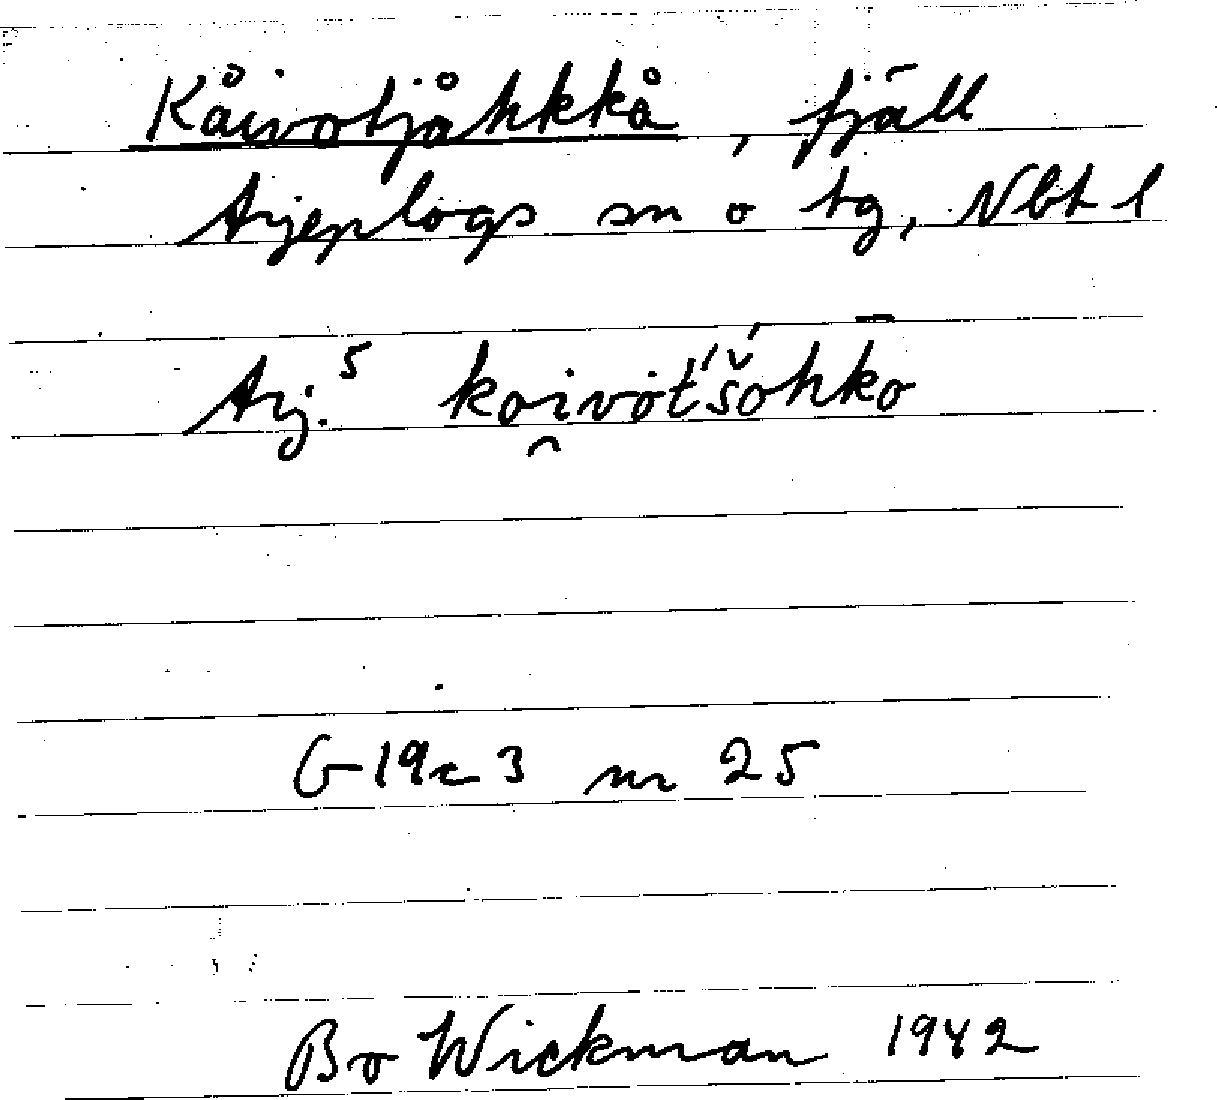 Kåivotjåhkkå, fjäll
Arjeplogs sn o tg, Nbt l
Arj.⁵ ko̯ivot́'š́ohkō
G 19c 3 nr 25
Bo Wickman 1942